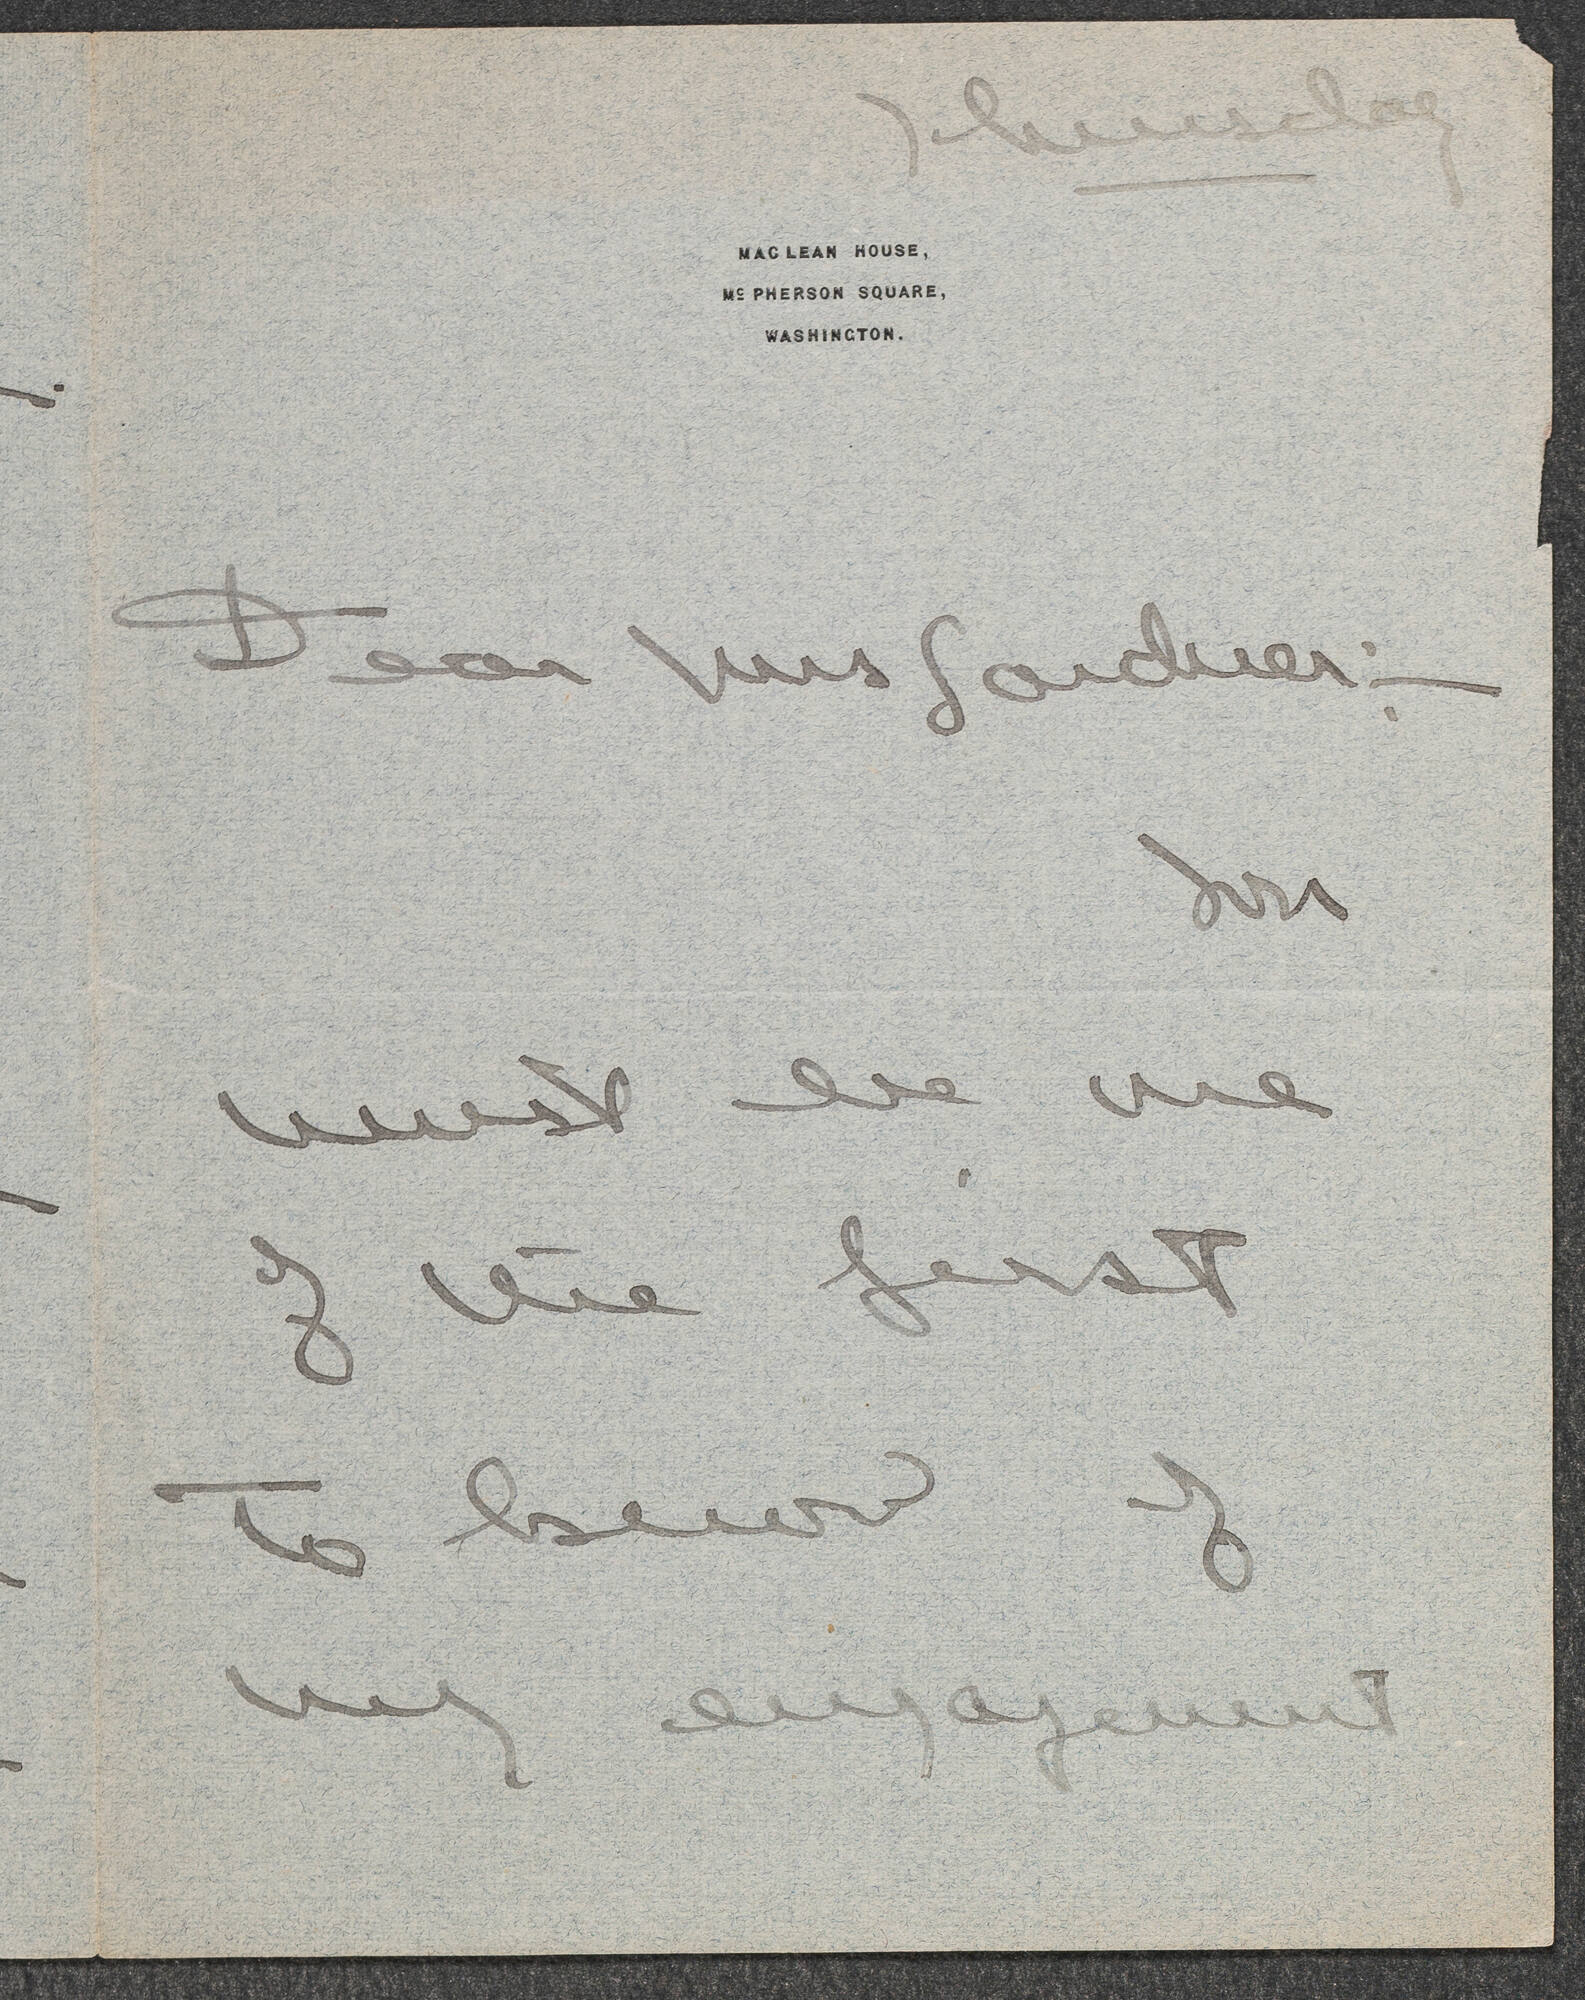 Thursday
MACLEAN HOUSE,
McPHERSON SQUARE,
WASHINGTON.
Dear Mrs Gardner:—
You
must be one
of the first
To know of
my engagement